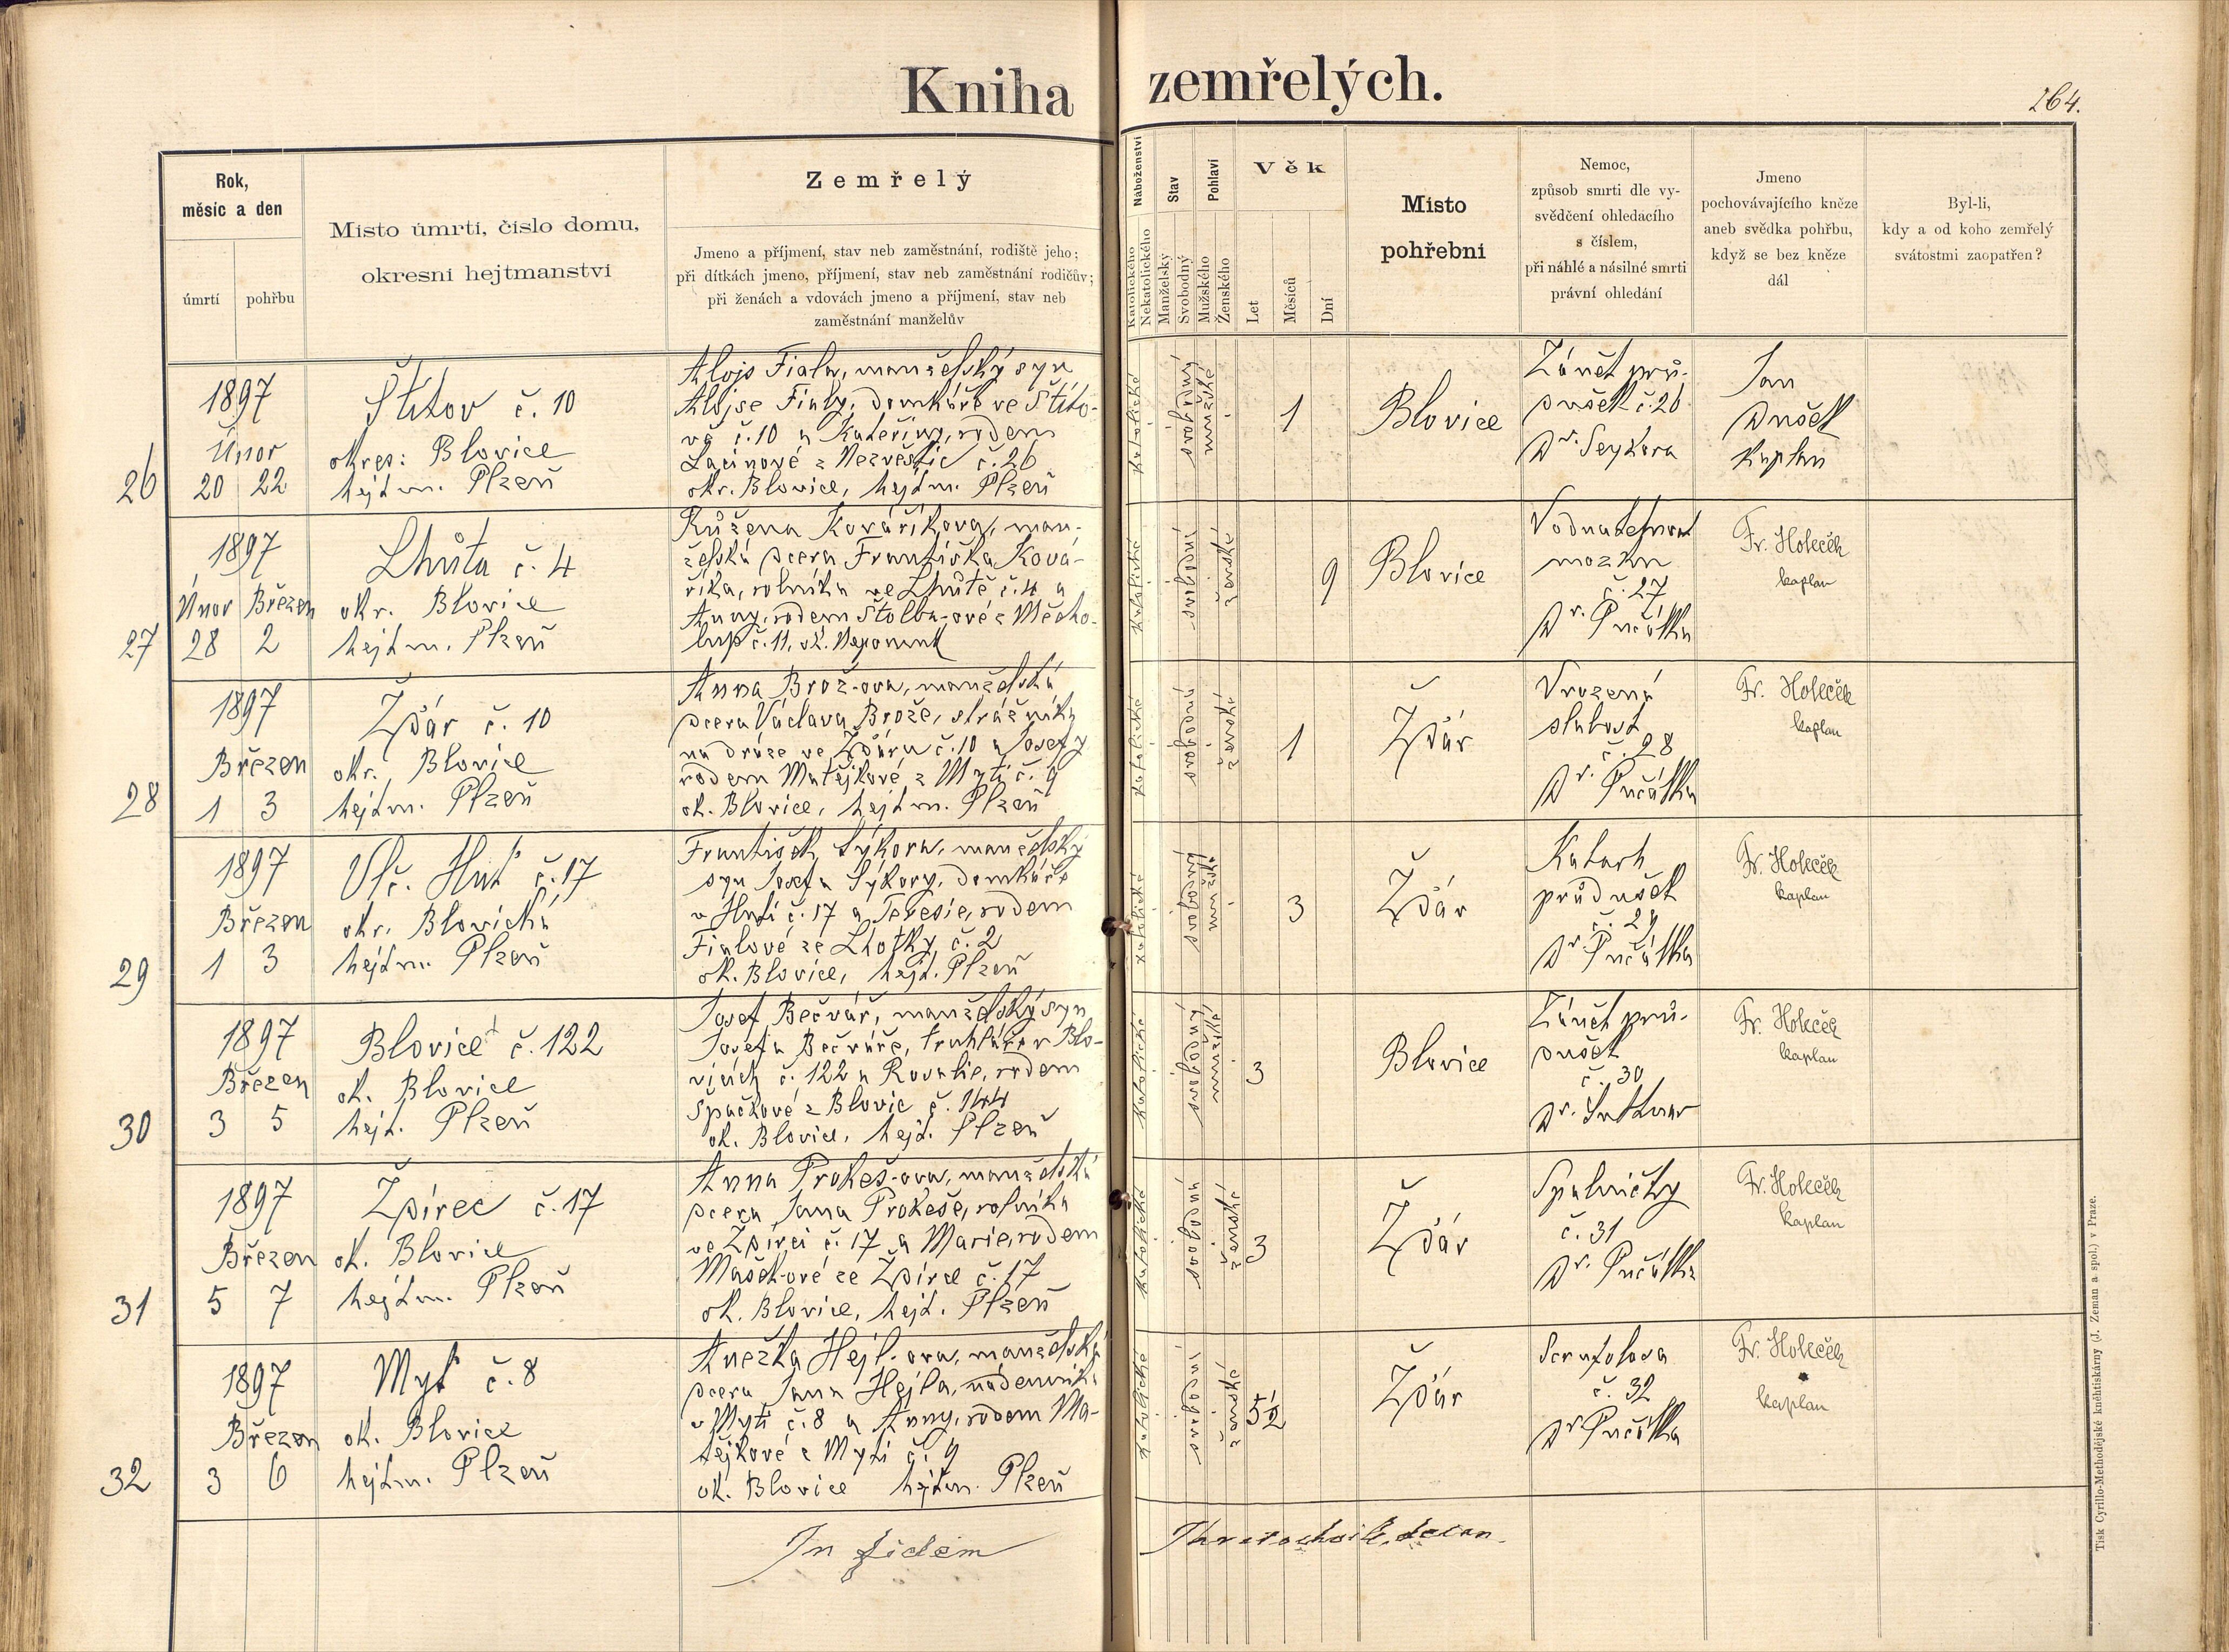 Kniha zemřelých.
264.
Rok,
měsíc a den
úmrtí
pohřbu
Místo úmrtí, číslo domu,
okresní hejtmanství
Zemřelý
Jmeno a příjmení, stav neb zaměstnání, rodiště jeho;
při dítkách jmeno, příjmení, stav neb zaměstnání rodičův;
při ženách a vdovách jmeno a příjmení, stav neb
zaměstnání manželův
Náboženství
Katolického
Nekatolického
Stav
Manželský
Svobodný
Pohlaví
Mužského
Ženského
Věk
Let
Měsíců
Dní
Místo
pohřební
Nemoc,
způsob smrti dle vy-
svědčení ohledacího
s číslem,
při náhlé a násilné smrti
právní ohledání
Jmeno
pochovávajícího kněze
aneb svědka pohřbu,
když se bez kněze
dál
Byl-li,
kdy a od koho zemřelý
svátostmi zaopatřen?
26
1897
Únor
20 22
Štítov č. 10
okres: Blovice
hejtm. Plzeň
Alojs Fiala, manželský syn
Alojse Fialy, domkáře ve Štíto-
vě č.10 a Kateřiny, rodem
Lacinové z Nezvěstic č. 26
okr. Blovice, hejtm. Plzeň
katolické
svobodný
mužské
1
Blovice
Zánět prů-
dušek č. 26
Dr. Seykora
Jan
Dušek
kaplan
27
1897
Únor Březen
28 2
Lhůta č. 4
okr. Blovice
hejtm. Plzeň
Růžena Kovaříkova, man-
želská dcera Františka Kova-
říka, rolníka ve Lhůtě č. 4 a
Anny, rodem Štolba-ové z Měcho-
lup č. 11, ok. Nepomuk
katolické
svobodní
ženské
9
Blovice
Vodnatelnost
mozku
č. 27
Dr. Pučálka
Fr. Holeček
kaplan
28
1897
Březen
1 3
Ždár č. 10
okr. Blovice
hejtm. Plzeň
Anna Brož-ova, manželská
dcera Václava Brože, strážníka
na dráze ve Ždáru č. 10 a Josefy
rodem Matějkové z Mytí č. 9
ok. Blovice, hejtm. Plzeň
katolické
svobodná
ženské
1
Ždár
Vrozená
slabost
č. 28
Dr. Pučálka
Fr. Holeček
kaplan
29
1897
Březen
1 3
Vlč. Huť č. 17
okr. Blovická
hejtm. Plzeň
František Sýkora, manželský
syn Josefa Sýkory, domkáře
v Huti č. 17 a Teresie, rodem
Fialové ze Lhotky č. 2
ok. Blovice, hejt. Plzeň
katolické
svobodný
mužské
3
Ždár
Katarh
průdušek
č. 29
Dr. Pučálka
Fr. Holeček
kaplan
30
1897
Březen
3 5
Blovice č. 122
ok. Blovice
hejt. Plzeň
Josef Bečvář, manželský syn
Josefa Bečváře, truhláře v Blo-
vicích č. 122 a Rosalie, rodem
Špačkové z Blovic č. 144
ok. Blovice, hejt. Plzeň
katolické
svobodný
mužské
3
Blovice
Zánět prů-
dušek
č. 30
Fr. Holeček
kaplan
31
1897
Březen
5 7
Zpírec č. 17
ok. Blovice
hejtm. Plzeň
Anna Prokeš-ova, manželská
dcera Jana Prokeše, rolníka
ve Zpírci č. 17 a Marie, rodem
Mašek-ové ze Zpírce č. 17
ok. Blovice, hejt. Plzeň
katolické
svobodná
ženské
3
Ždár
Spalničky
č. 31
Dr. Pučálka
Fr. Holeček
kaplan
32
1897
Březen
3 6
Myť č. 8
ok. Blovice
hejtm. Plzeň
Anežka Hejl-ova, manželská
dcera Jana Hejla, nádeníka
v Myti č. 8 a Anny, rodem Ma-
tějkové z Myti č. 9
ok. Blovice hejtm. Plzeň
katolické
svobodní
ženské
5½
Ždár
č. 32
Dr. Pučálka
Fr. Holeček
kaplan
In fidem
děkan.
Tisk Cyrillo-Methodějské kněhtiskárny (J. Zeman a spol.) v Praze.